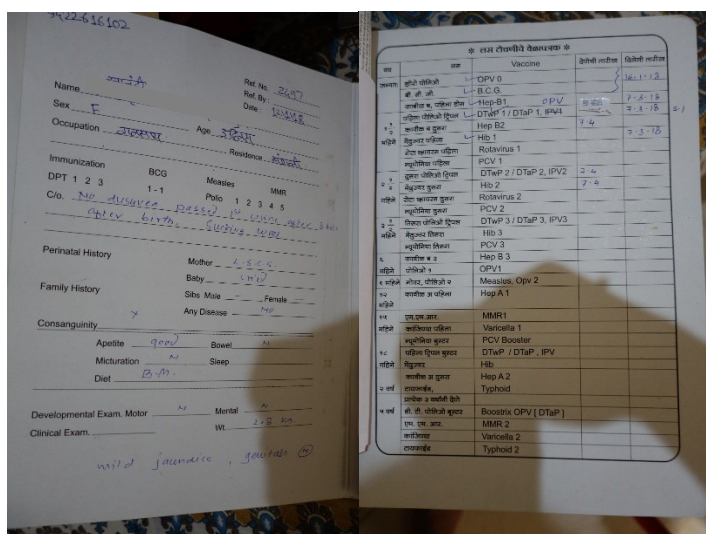 9422616102
Ref. No. 2497
Name
Ref. By :
Date :
Sex F
Age
Occupation
Residence
Immunization
BCG
Measles
MMR
DPT 1 2 3
1 - 1
Polio 1 2 3 4 5
C/o. No disurea passed 1st urine after 
after birth. Sucking well
Perinatal History
Mother L.S.C.S.
Baby
Family History
Sibs Male Female
Any Disease No
Consanguinity x
Apetite good Bowel N
Micturation N Sleep
Diet B.M.
Developmental Exam. Motor N Mental N
Clinical Exam. Wt. 2.8 kg
mild jaundice,
※ लस टोचणीचे वेळापत्रक ※
वय लस Vaccine देणेची तारीख दिलेली तारीख
जन्मतः झिरो पोलिओ OPV 0
बी. सी. जी. B.C.G.
कावीळ ब, पहिला डोस Hep-B1 OPV 7-3-18
पहिला पोलिओ ट्रिपल DTwP 1 / DTaP 1, IPV1 7-3-18
कावीळ ब दुसरा Hep B2 7-4
महिने मेंदुज्वर पहिला Hib 1 7-3-18
रोटा व्हायरस पहिला Rotavirus 1
न्यूमोनिया पहिला PCV 1
दुसरा पोलिओ ट्रिपल DTwP 2 / DTaP 2, IPV2 7-4
मेंदुज्वर दुसरा Hib 2 7-4
महिने रोटा व्हायरस दुसरा Rotavirus 2
न्यूमोनिया दुसरा PCV 2
तिसरा पोलिओ ट्रिपल DTwP 3 / DTaP 3, IPV3
महिने मेंदुज्वर तिसरा Hib 3
न्यूमोनिया तिसरा PCV 3
६ कावीळ ब ३ Hep B 3
महिने पोलिओ १ OPV1
९ महिने गोवर, पोलिओ २ Measles, Opv 2
१२ कावीळ अ पहिला Hep A 1
महिने
१५ एम.एम.आर. MMR1
महिने कांजिण्या पहिला Varicella 1
न्यूमोनिया बुस्टर PCV Booster
१८ पहिला ट्रिपल बुस्टर DTwP / DTaP , IPV
महिने मेंदुज्वर Hib
कावीळ अ दुसरा Hep A 2
२ वर्ष टायफाईड, Typhoid
प्रत्येक ३ वर्षांनी देणे
५ वर्ष डी. टी. पोलिओ बूस्टर Boostrix OPV [ DTaP ]
एम. एम. आर. MMR 2
कांजिण्या Varicella 2
टायफाईड Typhoid 2